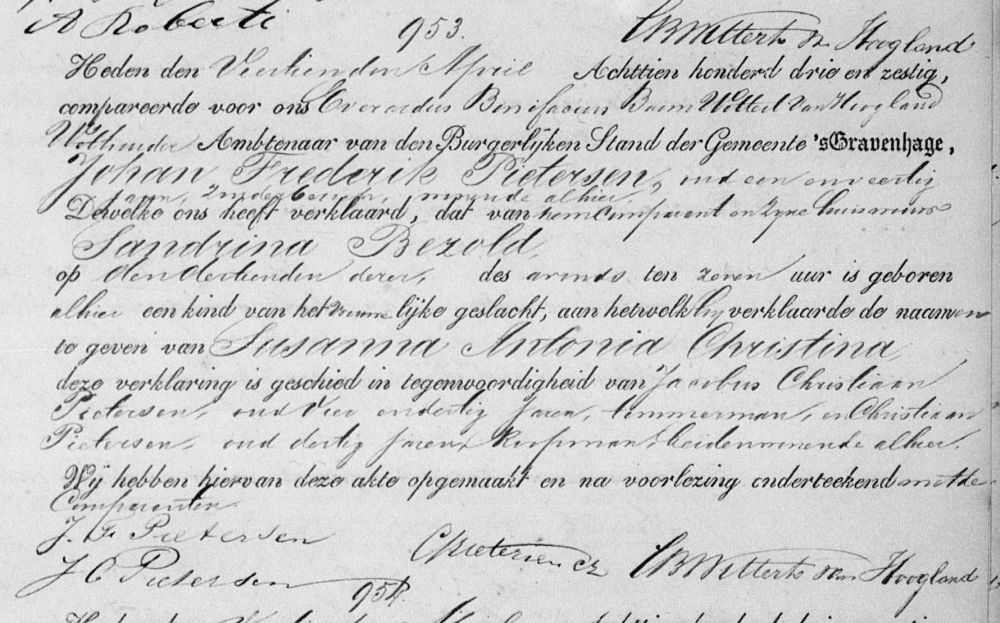 A Roberti
953.
CBWitterts v Hoogland
Heden den Veertienden April Achttien honderd drie en zestig,
compareerde voor ons Everardus Bonifacius Baron Wittert van Hoogland
Wethouder Ambtenaar van den Burgerlijken Stand der Gemeente 'sGravenhage,
Johan Frederik Pietersen, oud een en veertig
jaren, zonder beroep, wonende alhier,
Dewelke ons heeft verklaard, dat van hem Comparant en zijne huisvrouw
Sandrina Bezold,
op den dertienden dezer, des avonds ten zeven uur is geboren
alhier een kind van het vrouwelijke geslacht, aan hetwelk hij verklaarde de naamen
te geven van Susanna Antonia Christina
deze verklaring is geschied in tegenwoordigheid van Jacobus Christiaan
Pietersen, oud Vier en dertig jaren, timmerman, en Christiaan
Pietersen, oud dertig jaren, koopman, beiden wonende alhier.
Wij hebben hiervan deze akte opgemaakt en na voorlezing onderteekend met de
Comparanten
J. F. Pietersen
CPietersen cz
Witterts van Hoogland
J C Pietersen
954.